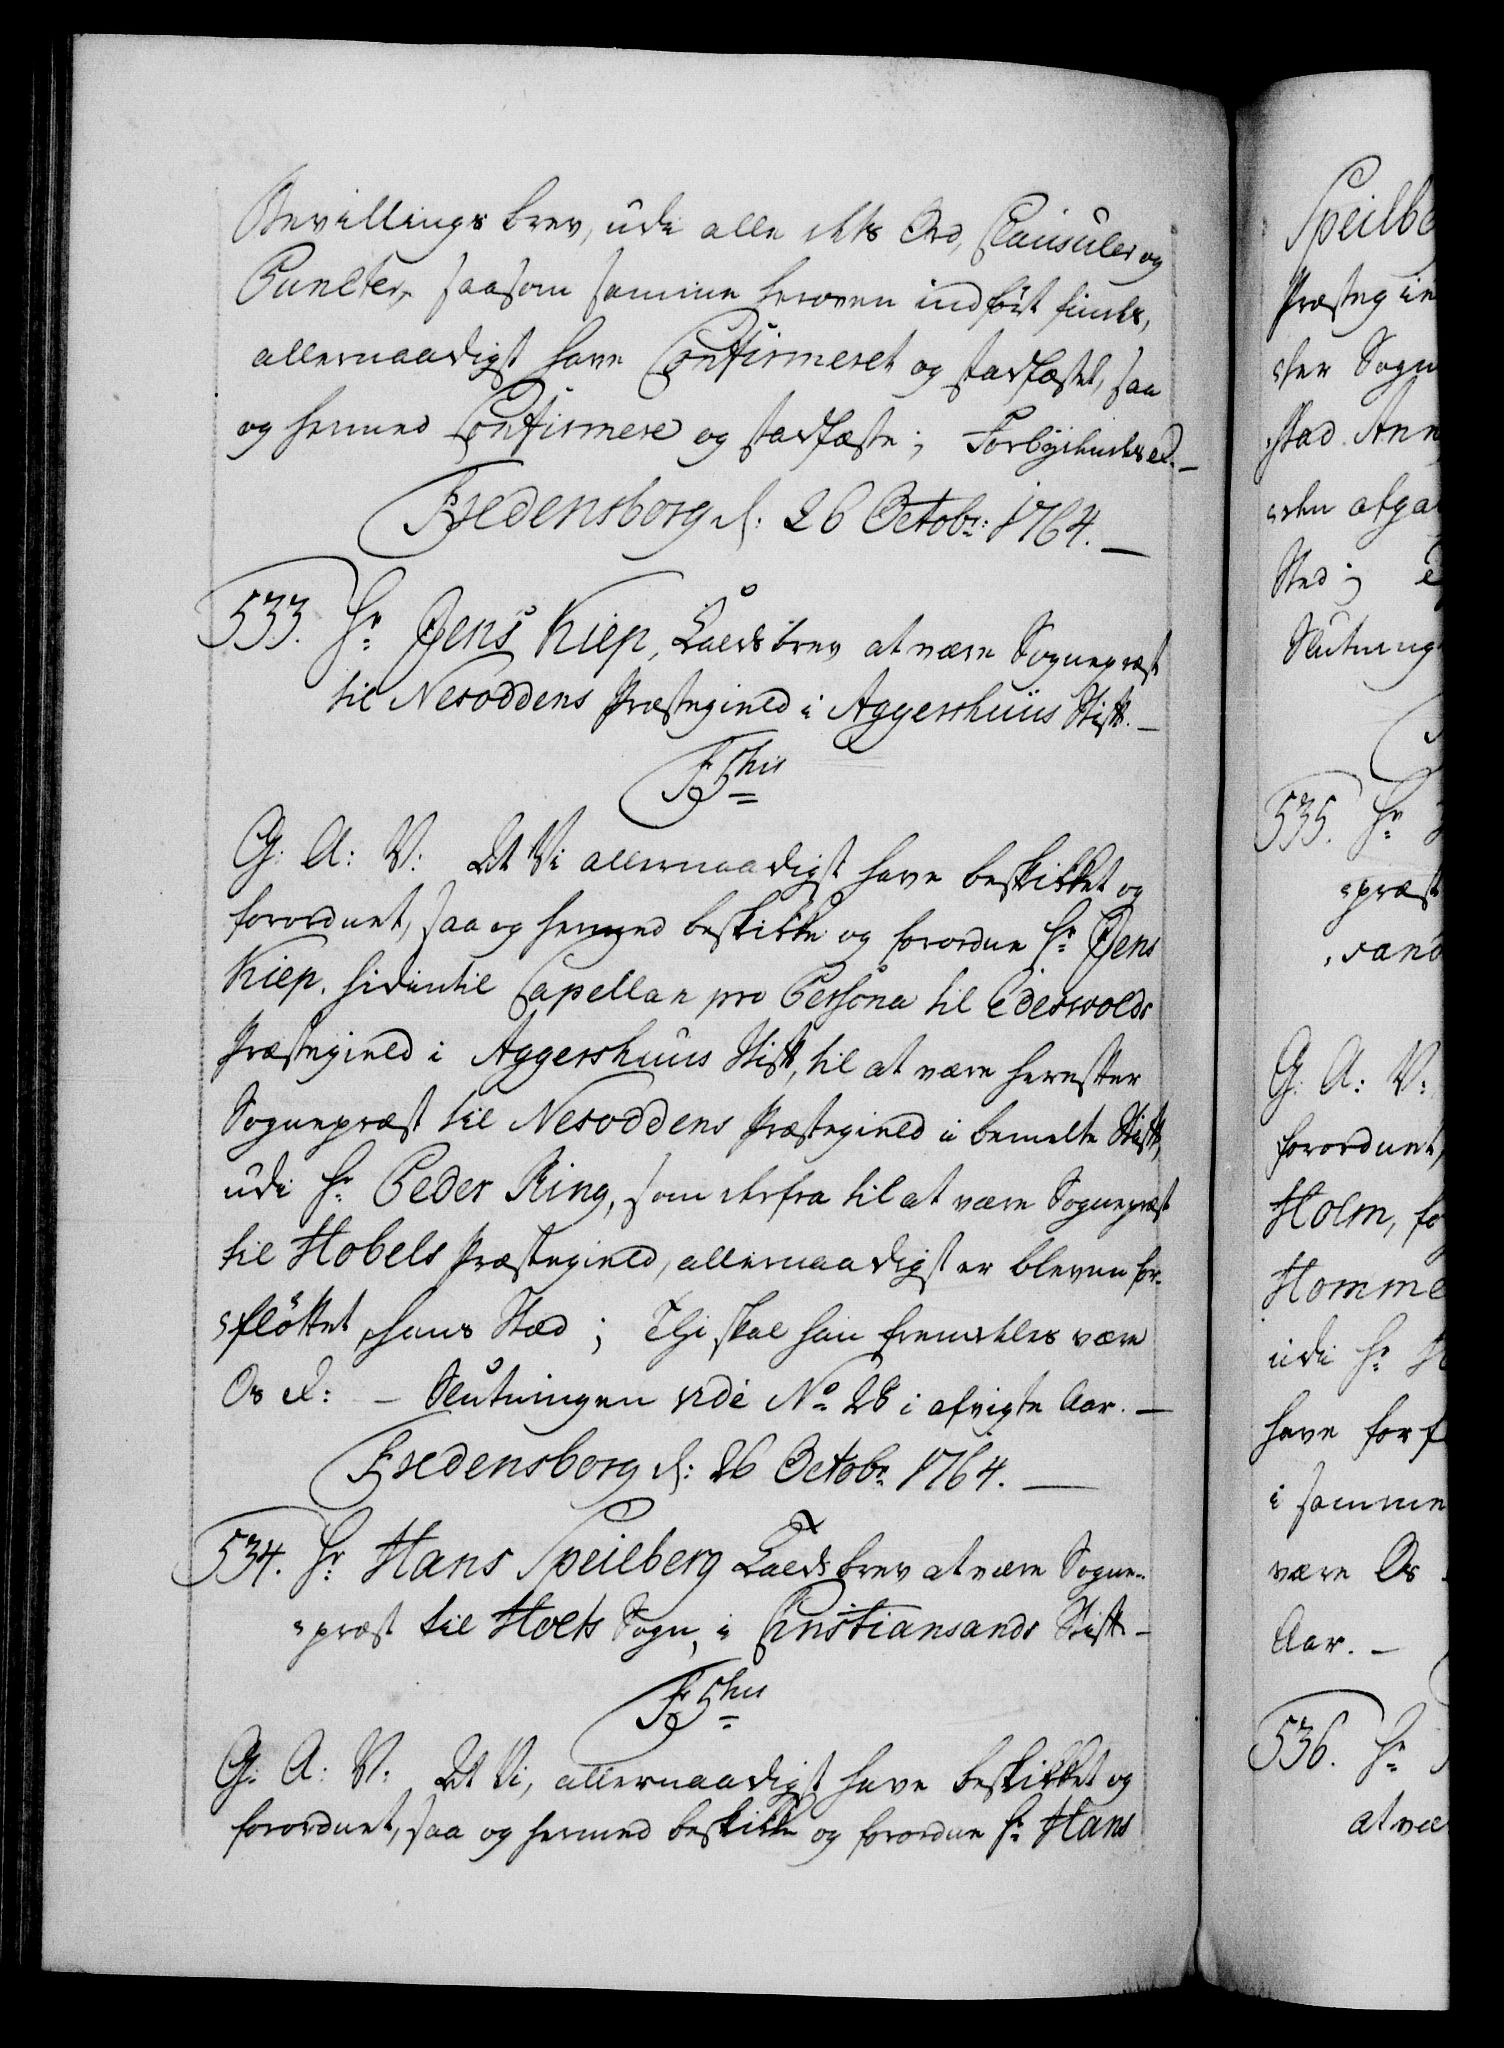 Bevillings brev, udi alle dets Ord, Clausuler og
Puncter, saasom samme heroven indført findes,
allernaadigst have Confirmeret og stadfæstet, saa
og hermed Confirmere og stadfæste; Forbydendes &.
Fredensborg d: 26 Octobr: 1764.
533. Hr Jens Kiep, Kaldsbrev at være Sognepræst
til Nesoddens Præstegield i Aggershuus Stift.
F 5tus
G: A: V: At Vi allernaadigst have beskikket og
forordnet, saa og hermed beskikke og forordne Hr Jens
Kiep, hidindtil Capellan pro Persona til Edesvolds
Præstegield i Aggershuus Stift, til at være herefter
Sognepræst til Nesoddens Præstegield i bemelte Stift,
udi Hr Peder Ring, som derfra til at være Sognepræst
til Hobels Præstegield, allernaadigst er bleven for-
flöttet, hans Sted; Thi skal han fremdeles være
Os &: - Slutningen vide No 28 i afvigte Aar.
Fredensborg d: 26 Octobr 1764.
534. Hr Hans Speilberg Kaldsbrev at være Sogne-
præst til Holts Sogn, i Christiansands Stift
F 5tus
G: A: V: At Vi, allernaadigst have beskikket og
forordnet, saa og hermed beskikke og forordne Hr Hans
Speilbe
Præstegie
der Sogn
stad. Ann
den afga
Sted;
Slutning
535. Hr
præst
sand
G: A: V:
forordnet,
Holm, fo
Homme
udi Hr
have forf
i samme
være Os
Aar.
536. Hr
at væ